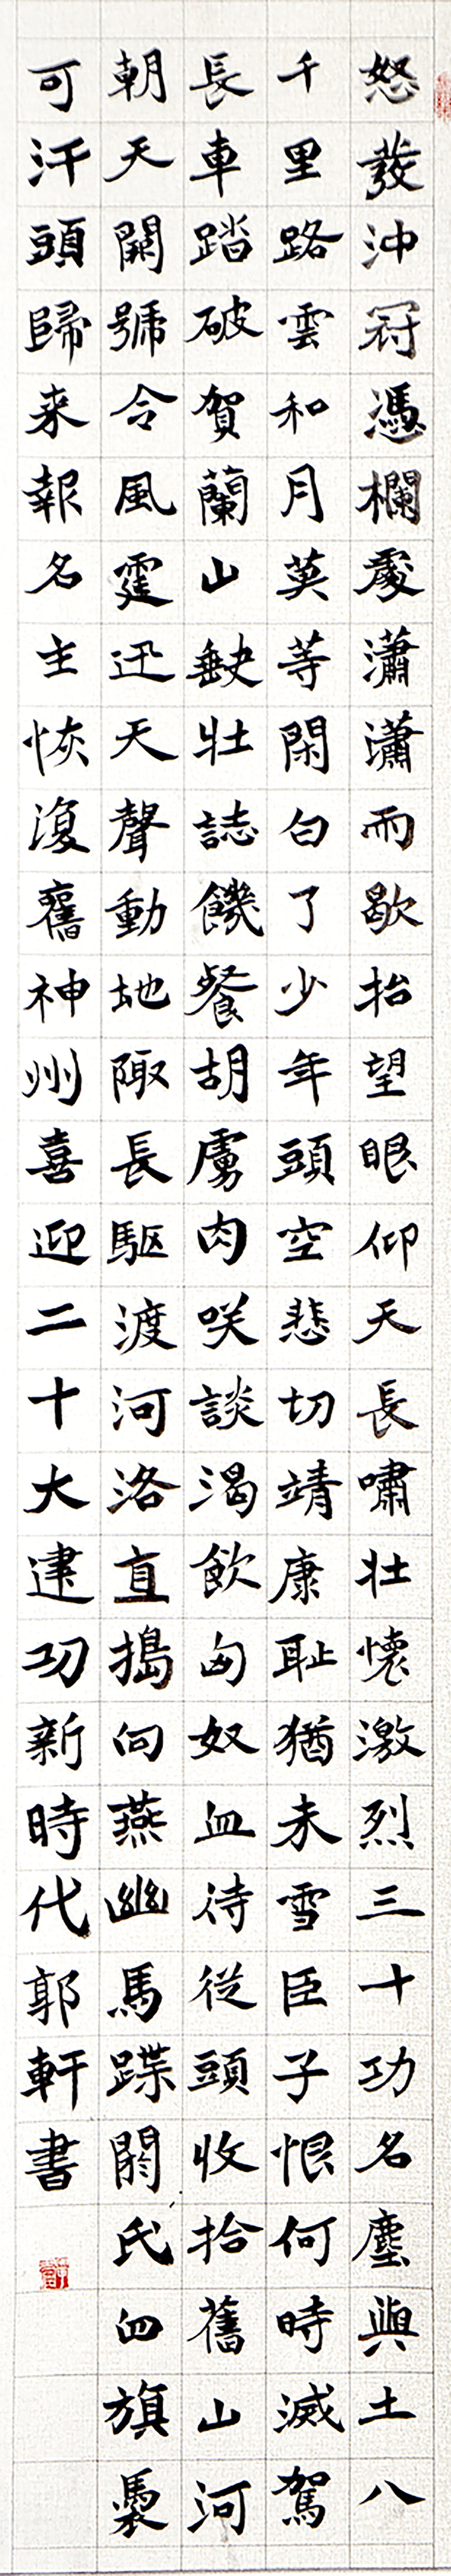 怒發沖冠憑欄處瀟瀟雨歇抬望眼仰天長嘯壯懷激烈三十功名塵與土八
千里路雲和月莫等閑白了少年頭空悲切靖康耻猶未雪臣子恨何時滅駕
長車踏破賀蘭山缺壯誌饑餐胡虜肉咲談渴飲匈奴血待從頭收拾舊山河
朝天闕號令風霆迅天聲動地陬長駆渡河洛直搗向燕幽馬蹀閼氏血旗褭
可汗頭歸来報名主恢復舊神州喜迎二十大建功新時代郭軒書